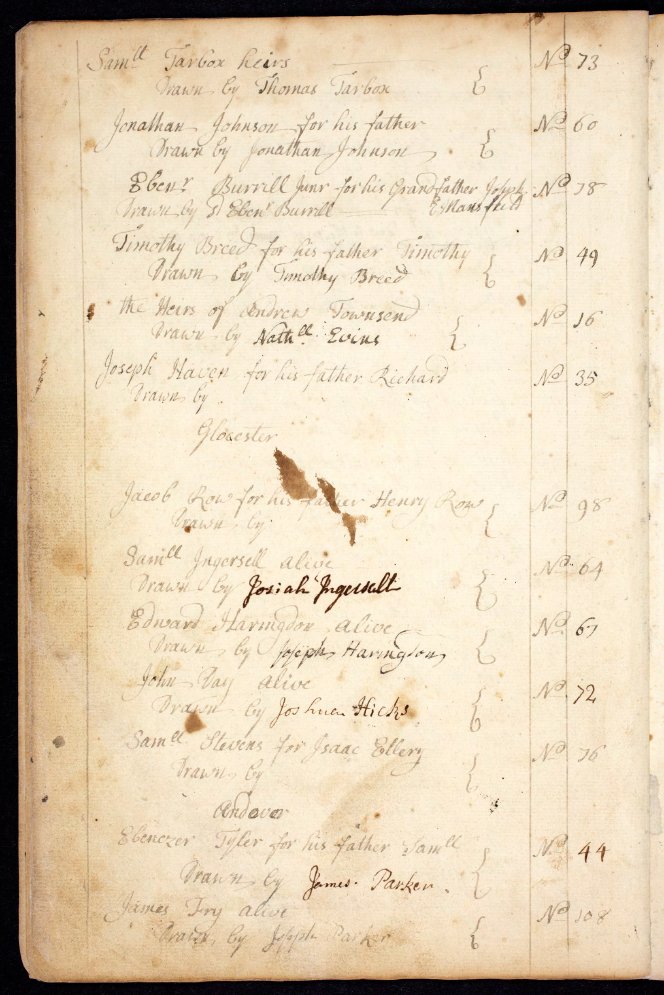 Samll Tarbox heirs No 73
Drawn by Thomas Tarbox
Jonathan Johnson for his father No 60
Drawn by Jonathan Johnson
Ebenr Burrill Junr for his Grandfather Joseph No 78
Drawn by sd Ebenr Burrill Mansfield
Timothy Breed for his father Timothy No 49
Drawn by Timothy Breed
the Heirs of Andrew Townsend No 16
Drawn by Nathll Evins
Joseph Haven for his father Richard No 35
Drawn by
Glocester
Jacob Row for his father Henry Row No 98
Drawn by
Samll Ingersell alive No 64
Drawn by Josiah Ingersell
Edward Haringdon alive No 67
Drawn by Joseph Haringdon
John Day alive No 72
Drawn by Joshua Hicks
Samll Stevens for Isaac Ellery No 76
Drawn by
Andover
Ebenezer Tyler for his father Samll No 44
Drawn by James Parker.
James Fry alive No 108
Drawn by Joseph Parker